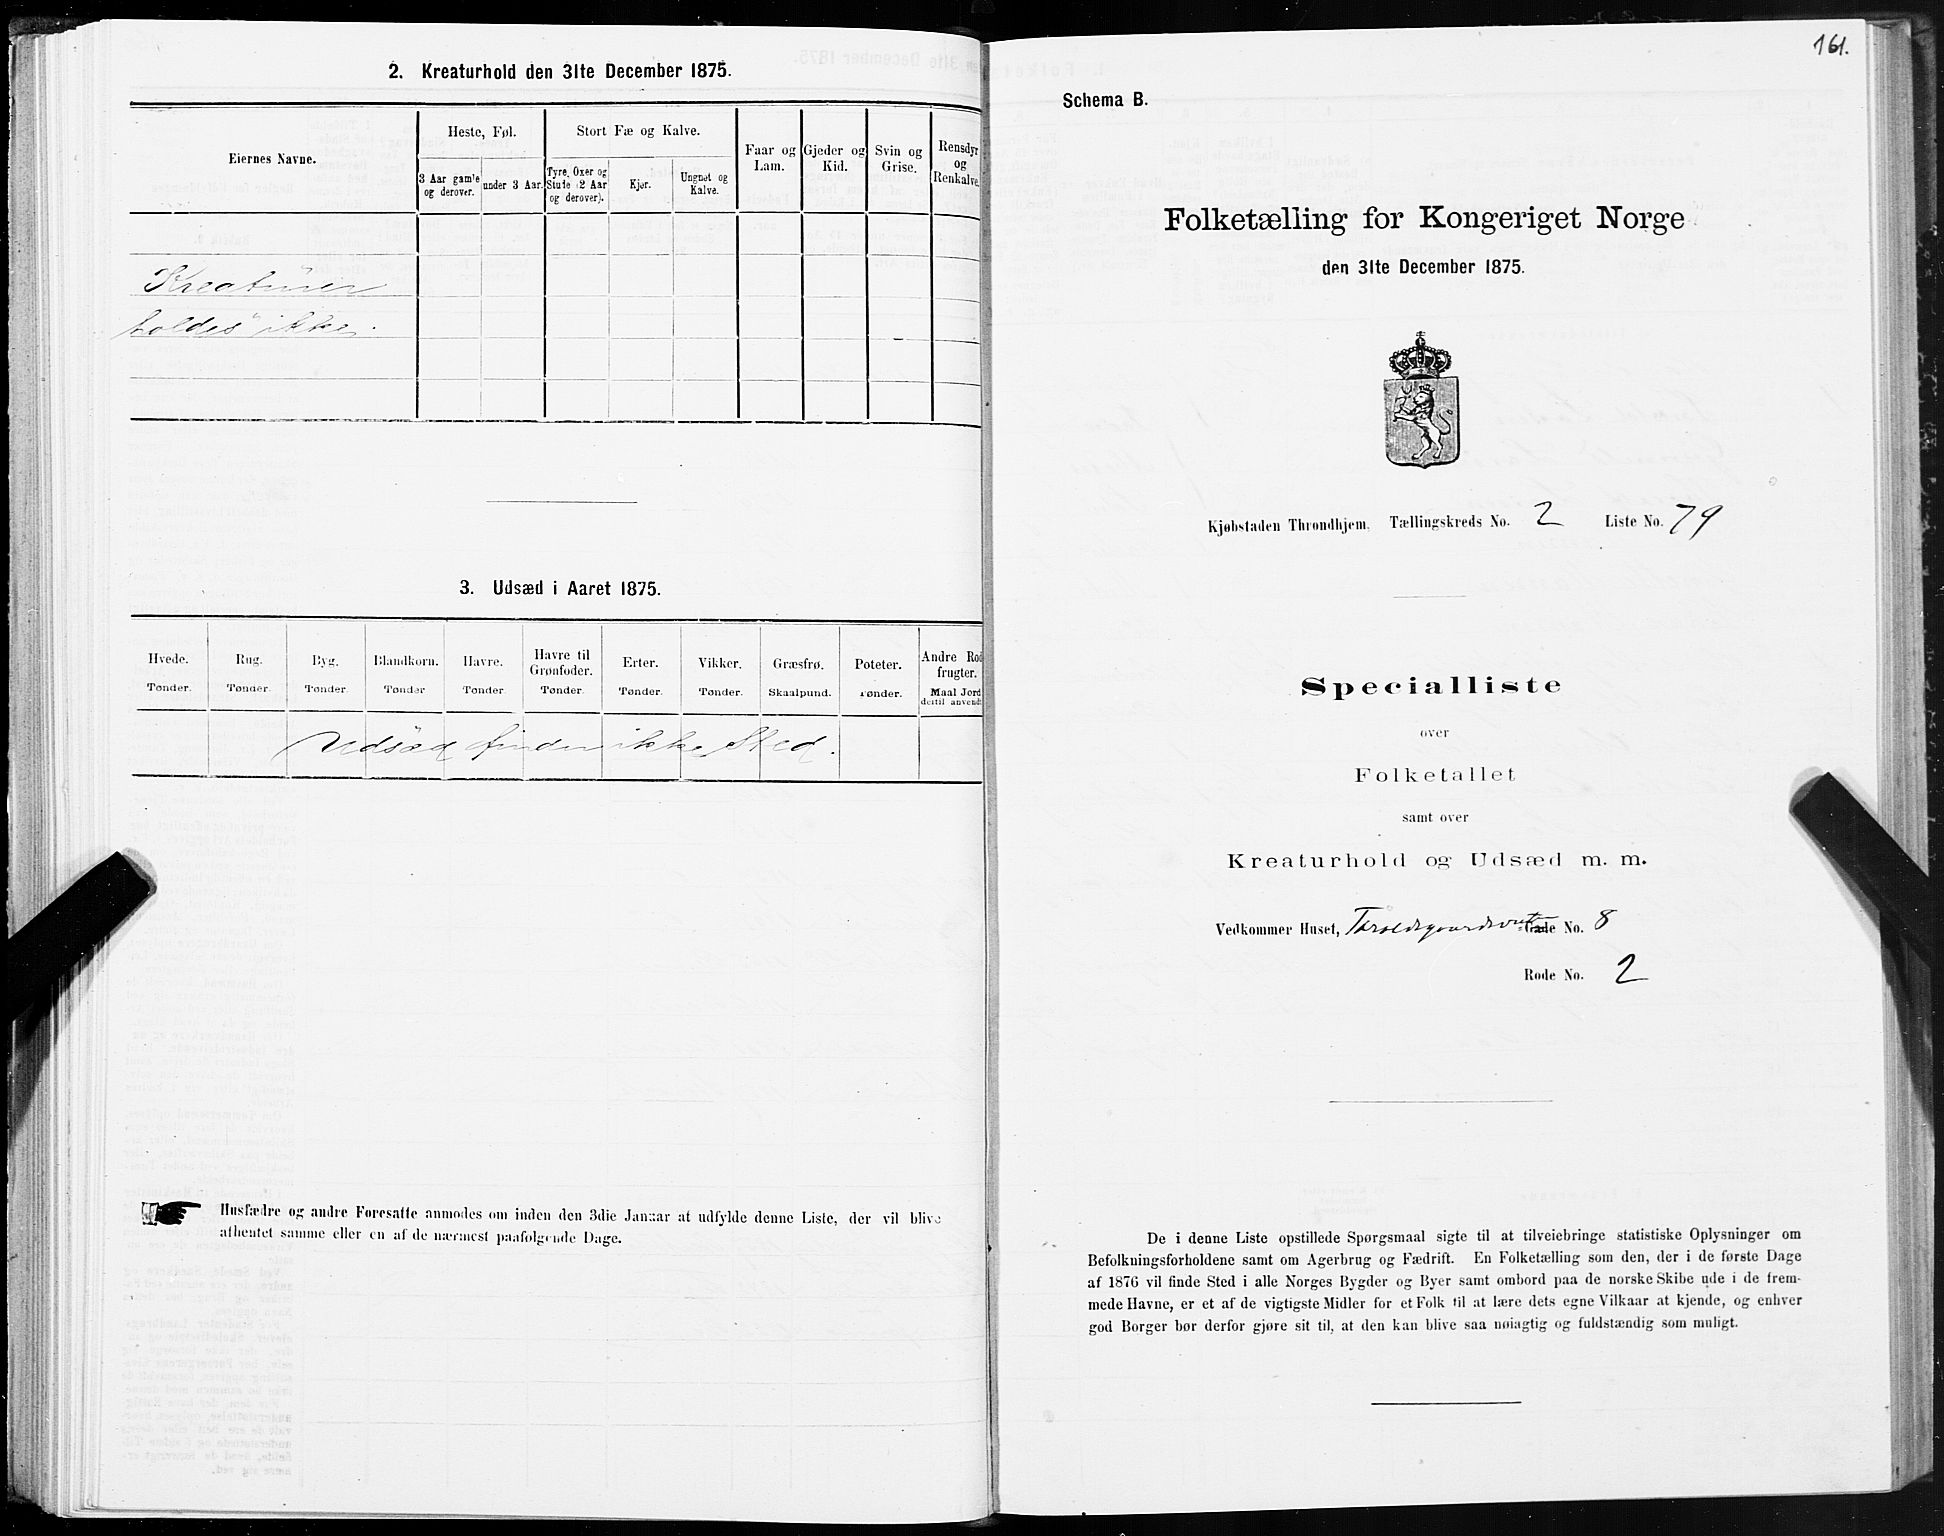 2. Kreaturhold den 31te December 1875.
Eiernes Navne.
Heste, Føl.
Stort Fæ og Kalve.
3 Aar gamle og derover.
under 3 Aar.
Tyre, Oxer og Stude (2 Aar og derover).
Kjør.
Ungnøt og Kalve.
Faar og Lam.
Gjeder og Kid.
Svin og Grise.
Rensdyr og Renkalve.
Kreaturer
holdes ikke.
3. Udsæd i Aaret 1875.
Hvede. Rug. Byg. Blandkorn. Havre. Havre til Grønfoder. Erter. Vikker. Græsfrø. Poteter. Andre Rodfrugter.
Tønder. Tønder. Tønder. Tønder Tønder. Tønder. Tønder. Tønder. Skaalpund. Tønder. Maal Jord dertil anvendt
Udsæd finder ikke Sted.
Husfædre og andre Foresatte anmodes om inden den 3die Januar at udfylde denne Liste, der vil blive
afhentet samme eller en af de nærmest paafølgende Dage.
161.
Schema B.
Folketælling for Kongeriget Norge
den 31te December 1875.
Kjøbstaden Throndhjem. Tællingskreds No. 2 Liste No. 79
Specialliste
over
Folketallet
samt over
Kreaturhold og Udsæd m. m.
Vedkommer Huset, Gade No. 8
Rode No. 2
De i denne Liste opstillede Spørgsmaal sigte til at tilveiebringe statistiske Oplysninger om
Befolkningsforholdene samt om Agerbrug og Fædrift. En Folketælling som den, der i de første Dage
af 1876 vil finde Sted i alle Norges Bygder og Byer samt ombord paa de norske Skibe ude i de frem-
mede Havne, er et af de vigtigste Midler for et Folk til at lære dets egne Vilkaar at kjende, og enhver
god Borger bør derfor gjøre sit til, at den kan blive saa nøiagtig og fuldstændig som muligt.